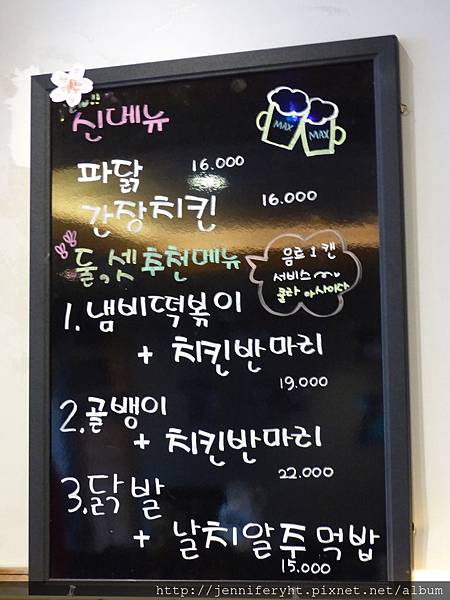 신메뉴
MAX MAX
파닭 16.000
간장치킨 16.000
둘, 셋 추천메뉴
음료 1 캔
서비스
콜라 아 사이다
1. 냄비떡볶이
+ 치킨반마리
19.000
2. 골뱅이
+ 치킨반마리
22.000
3. 닭발
+ 날치알주먹밥
15.000
http://jenniferyht.pixnet.net/album